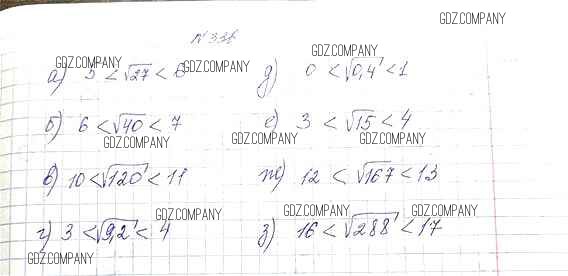 GDZ.COMPANY
№ 338
GDZ.COMPANY GDZ.COMPANY GDZ.COMPANY
а) 5 < √27 < 6
д) 0 < √0,4 < 1
б) 6 < √40 < 7
е) 3 < √15 < 4
GDZ.COMPANY GDZ.COMPANY GDZ.COMPANY
в) 10 < √120 < 11
ж) 12 < √167 < 13
GDZ.COMPANY GDZ.COMPANY GDZ.COMPANY
г) 3 < √9,2 < 4
з) 16 < √288 < 17
GDZ.COMPANY